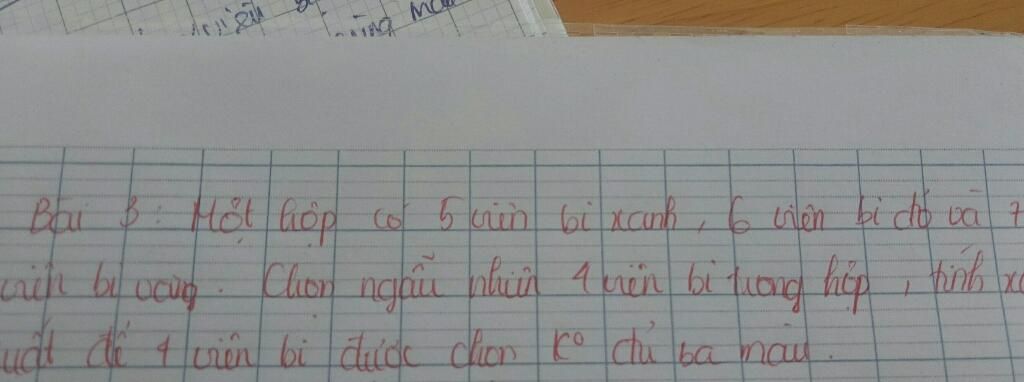 cùng mà
Bài 3: Một hộp có 5 viên bi xanh, 6 viên bi đỏ và 7
viên bi vàng. Chọn ngẫu nhiên 4 viên bi trong hộp, tính xá
uất để 4 viên bi được chọn k° đủ ba màu.